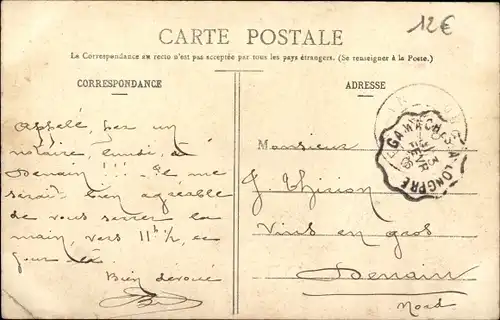 12€
CARTE POSTALE
La Correspondance au recto n'est pas acceptée par tous les pays étrangers. (Se renseigner à la Poste.)
CORRESPONDANCE
ADRESSE
Appelé, par un
notaire, lundi, à
Denain !!! Il me
serait bien agréable
de vous serrer la
main, vers 11h 1/2, ce
jour là.
Bien dévoué
Monsieur
J. Thirion
Vins en gros
Denain
Nord
GAMACHES A LONGPRE